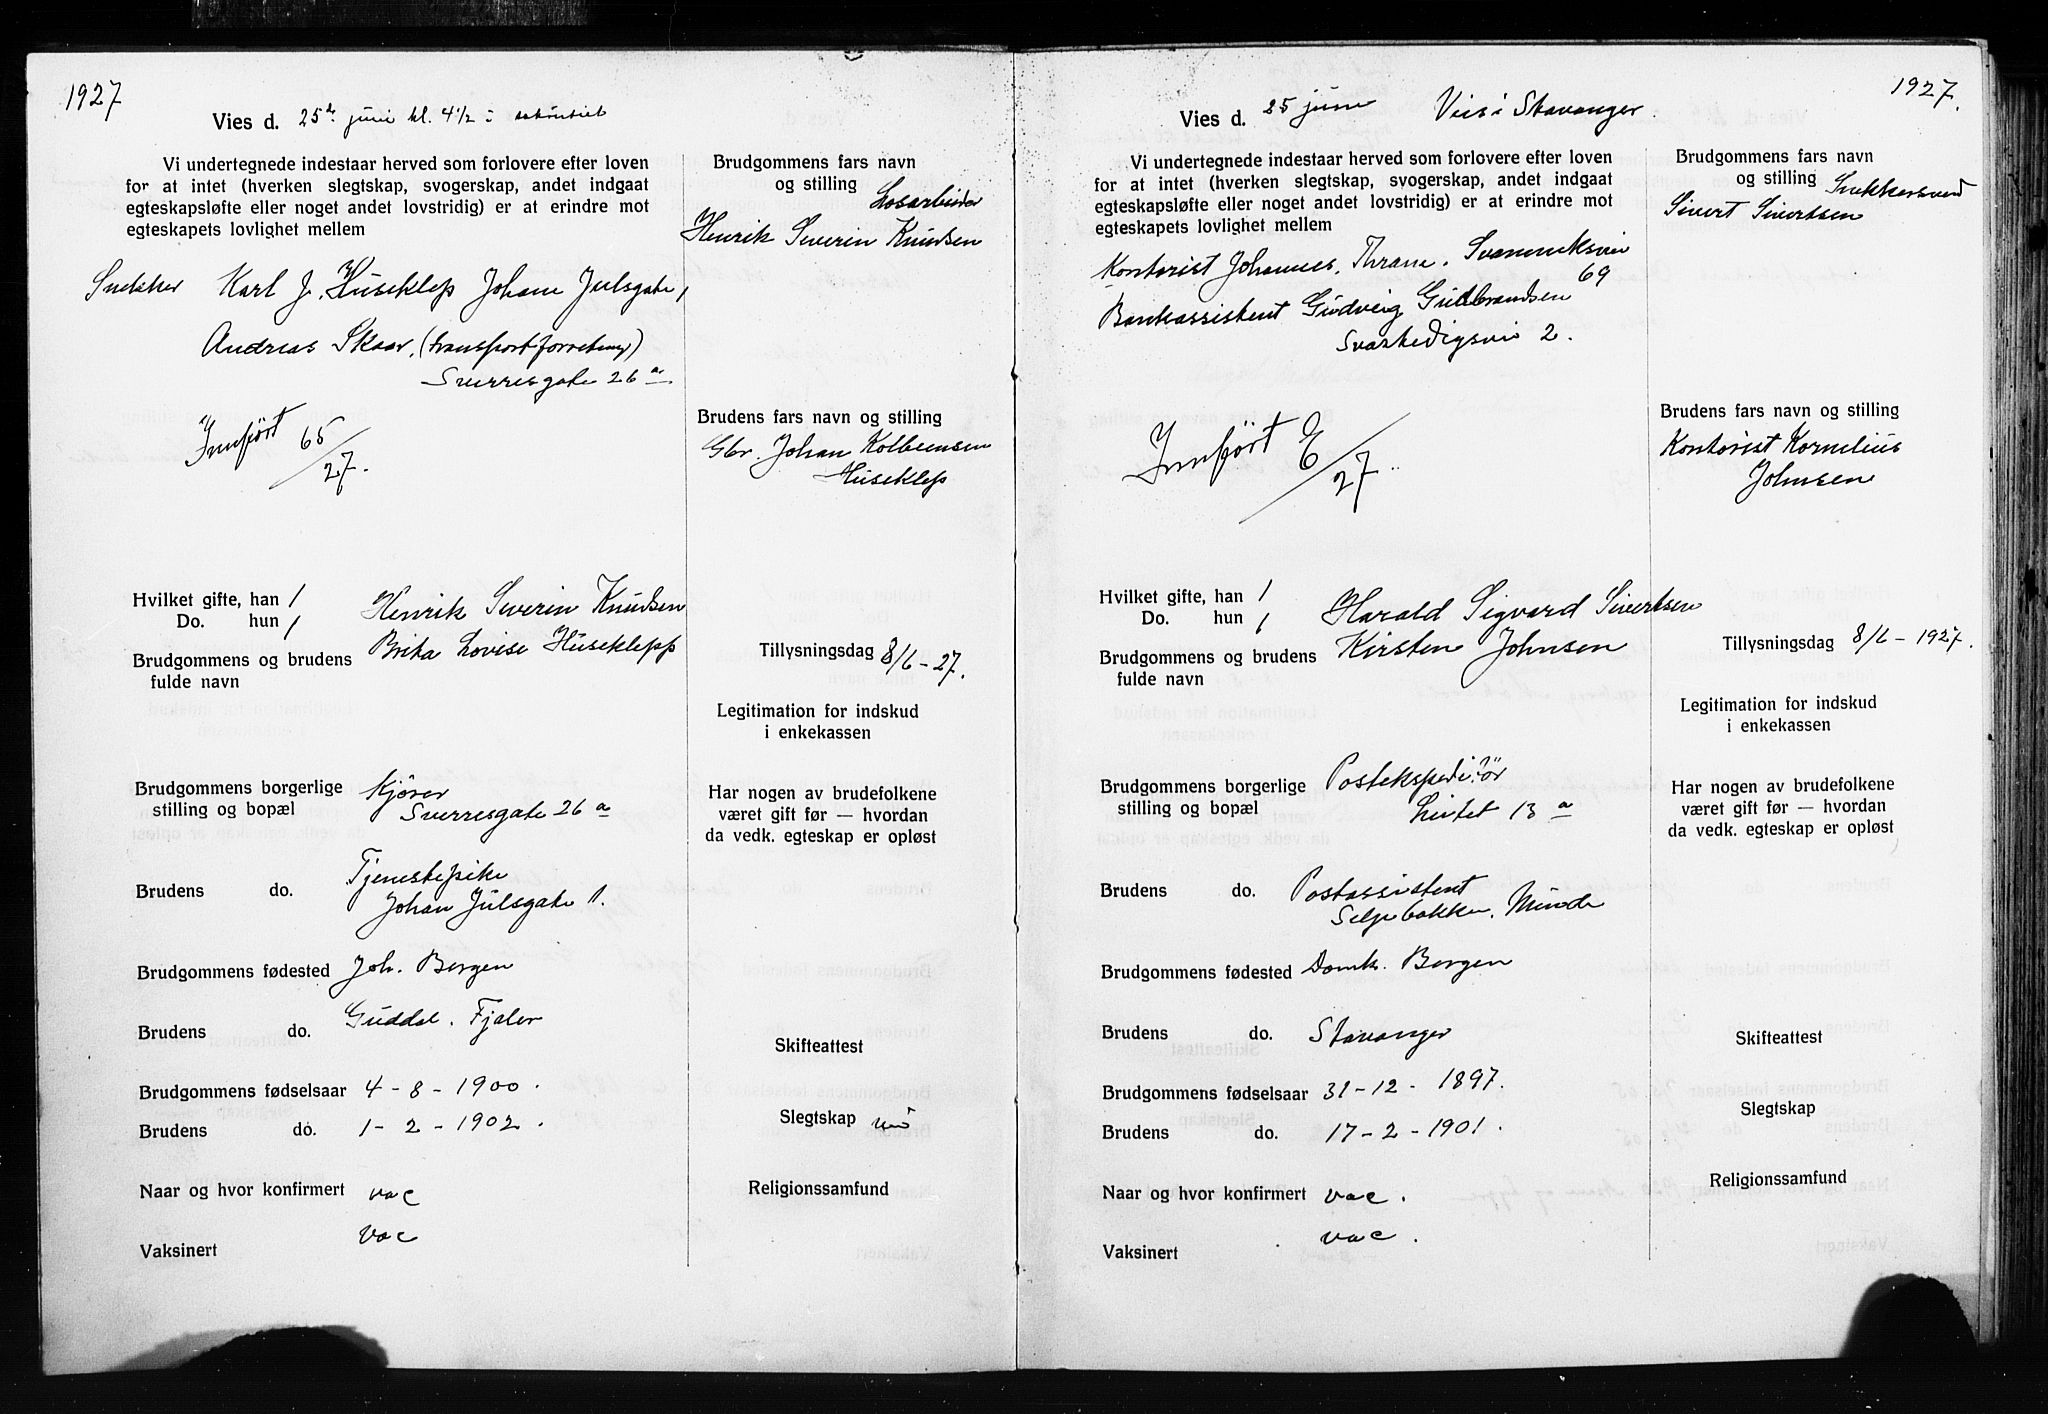 1927
Vies d. 25de juni kl. 4 1/2 i sakristiet
Vi undertegnede indestaar herved som forlovere efter loven
for at intet (hverken slegtskap, svogerskap, andet indgaat
egteskapsløfte eller noget andet lovstridig) er at erindre mot
egteskapets lovlighet mellem
Snekker Karl J. Huseklep Johan Julsgate 1
Andreas Skaar, (transportforretning)
Sverresgate 26 a
Innført 65/27.
Brudgommens fars navn
og stilling Losarbeider
Henrik Severin Knudsen
Brudens fars navn og stilling
Gbr. Johan Kolbeinsen
Huseklep
Hvilket gifte, han 1
Do. hun 1
Henrik Severin Knudsen
Brita Lovise Huseklepp
Brudgommens og brudens
fulde navn
Tillysningsdag 8/6 - 27.
Legitimation for indskud
i enkekassen
Brudgommens borgerlige
stilling og bopæl
Kjører
Sverresgate 26 a
Har nogen av brudefolkene
været gift før — hvordan
da vedk. egteskap er opløst
Brudens do.
Tjenestepike
Johan Julsgate 1.
Brudgommens fødested Joh. Bergen
Brudens do. Guddal. Fjaler
Skifteattest
Brudgommens fødselsaar 4 - 8 - 1900.
Brudens do. 1 - 2 - 1902.
Slegtskap nei
Naar og hvor konfirmert vac
Religionssamfund
Vaksinert vac
1927.
Vies d. 25 juni Vies i Stavanger.
Vi undertegnede indestaar herved som forlovere efter loven
for at intet (hverken slegtskap, svogerskap, andet indgaat
egteskapsløfte eller noget andet lovstridig) er at erindre mot
egteskapets lovlighet mellem
Kontorist Johannes Thrane. Svaneviksvei
69
Bankassistent Gudveig Gulbrandsen
Svartedigsvei 2.
Innført E/27.
Brudgommens fars navn
og stilling Snekkersvend
Sivert Sivertsen
Brudens fars navn og stilling
Kontorist Kornelius
Johnsen
Hvilket gifte, han 1
Do. hun 1
Harald Sigvard Sivertsen
Kirsten Johnsen
Brudgommens og brudens
fulde navn
Tillysningsdag 8/6 - 1927.
Legitimation for indskud
i enkekassen
Brudgommens borgerlige
stilling og bopæl
Postekspeditør
13 a
Har nogen av brudefolkene
været gift før — hvordan
da vedk. egteskap er opløst
Brudens do.
Postassistent
Seljebakken. Minde
Brudgommens fødested Domk. Bergen
Brudens do. Stavanger
Skifteattest
Brudgommens fødselsaar 31 - 12 - 1897.
Brudens do. 17 - 2 - 1901.
Slegtskap
Naar og hvor konfirmert vac.
Religionssamfund
Vaksinert vac.